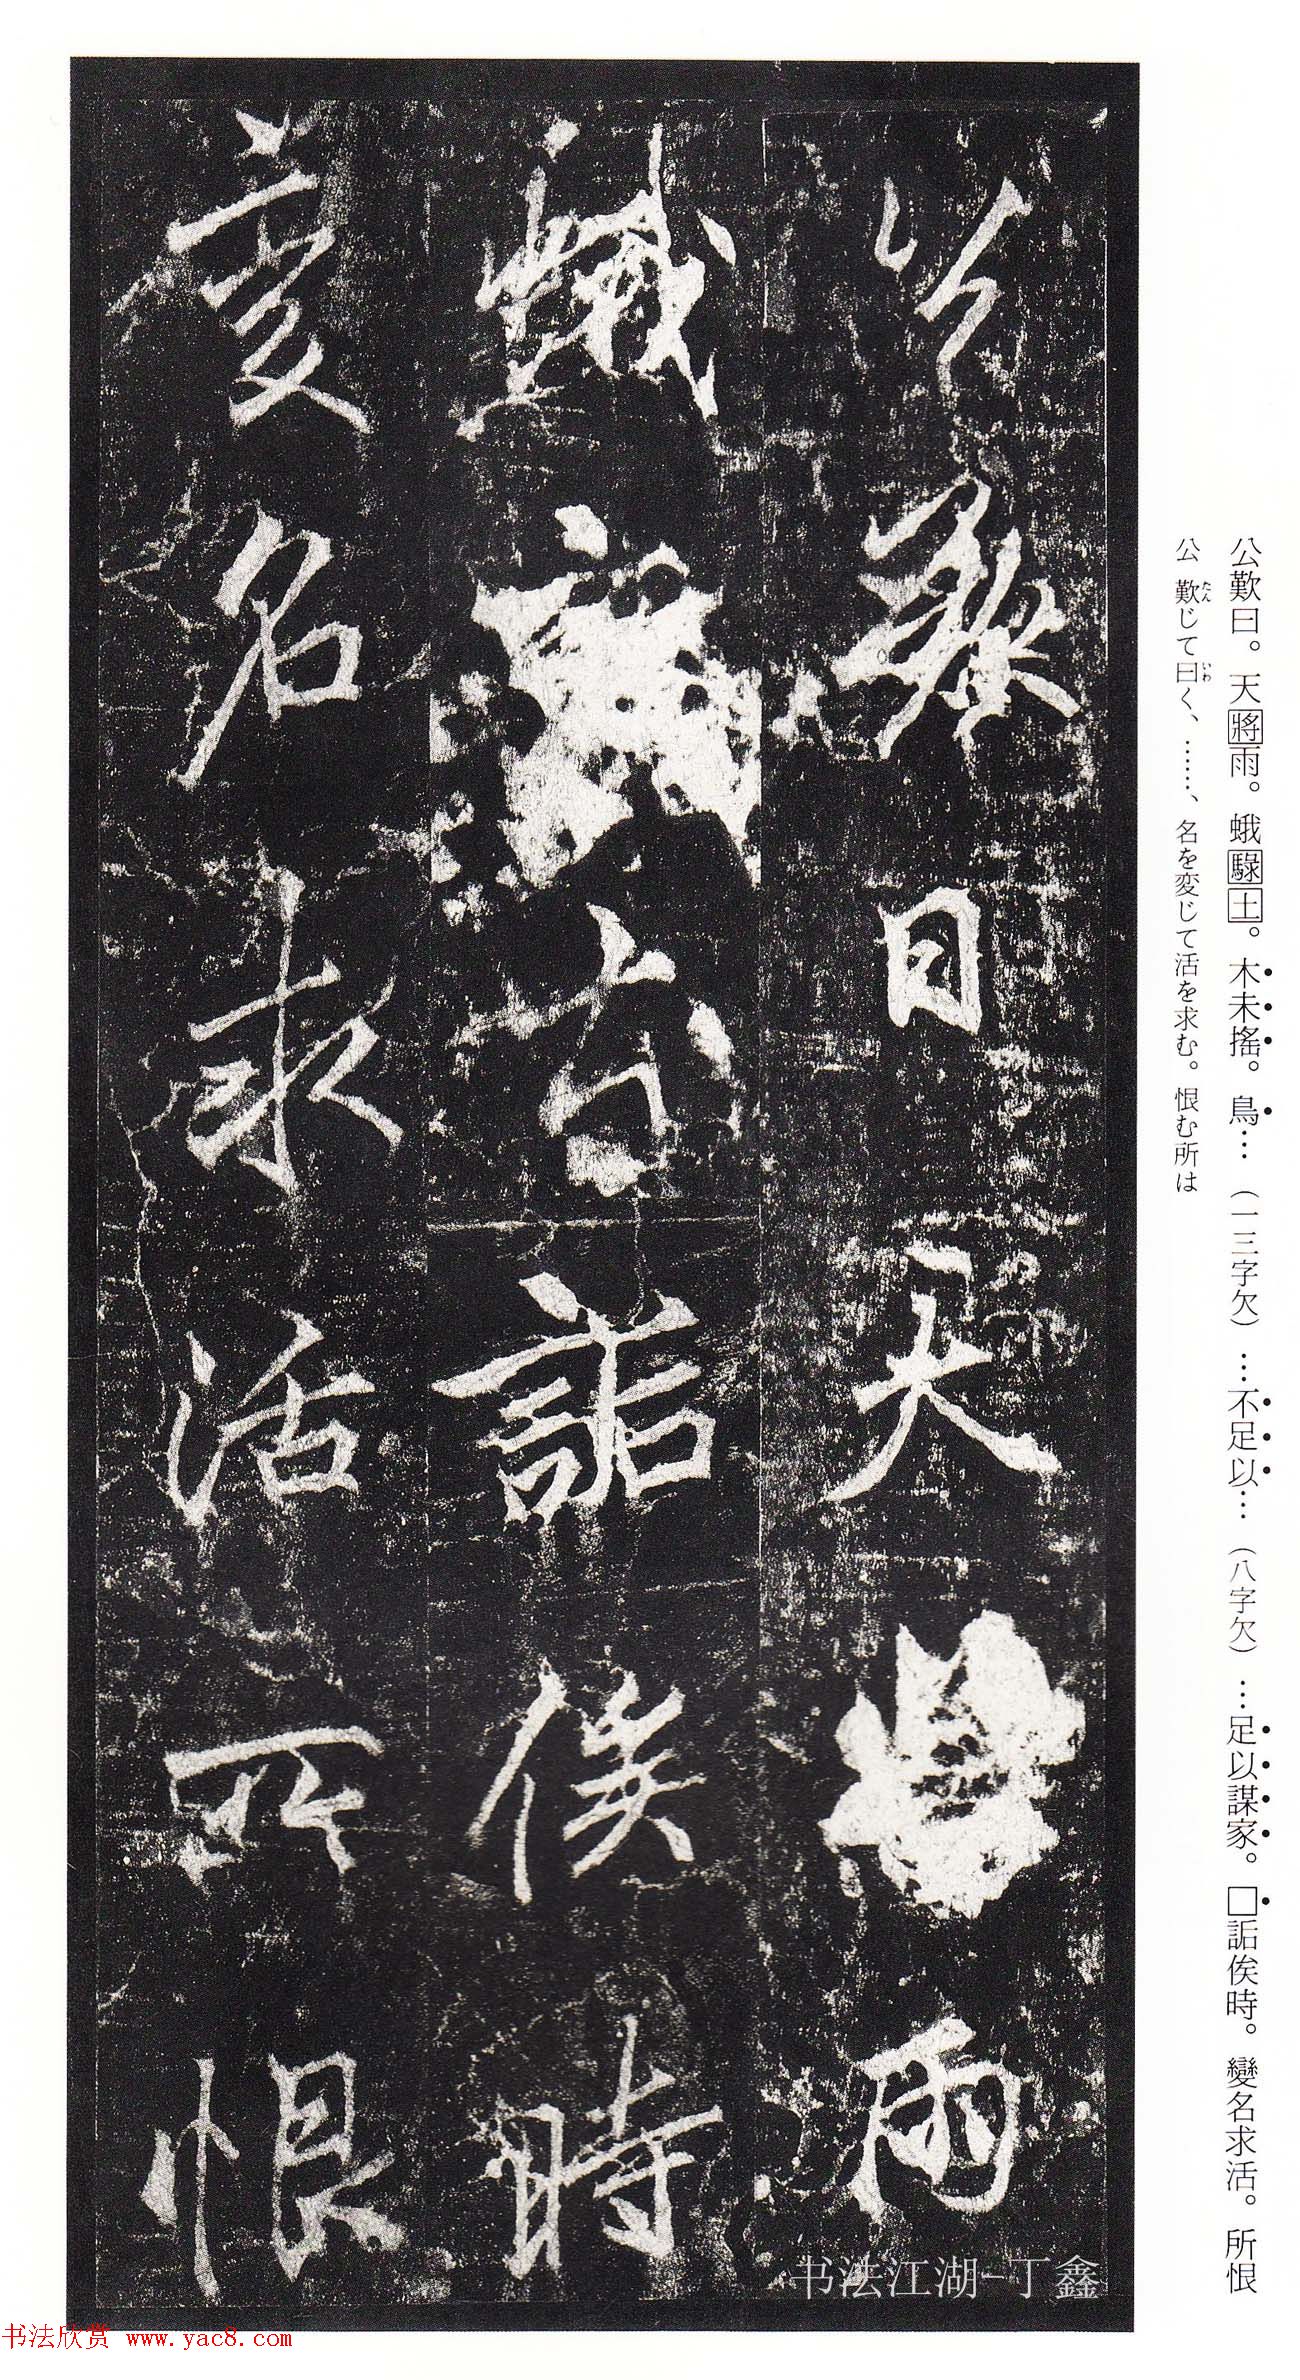 公歎曰。天將雨。蛾騄土。木未搖。鳥…（一三字欠）…不足以…（八字欠）…足以謀家。□詬俟時。變名求活。所恨
公歎じて曰く、……、名を変じて活を求む。恨む所は
たん
いわ
公歎曰天雨
蛾詬俟時
變名求活所恨
书法江湖-丁鑫
书法欣赏 www.yac8.com